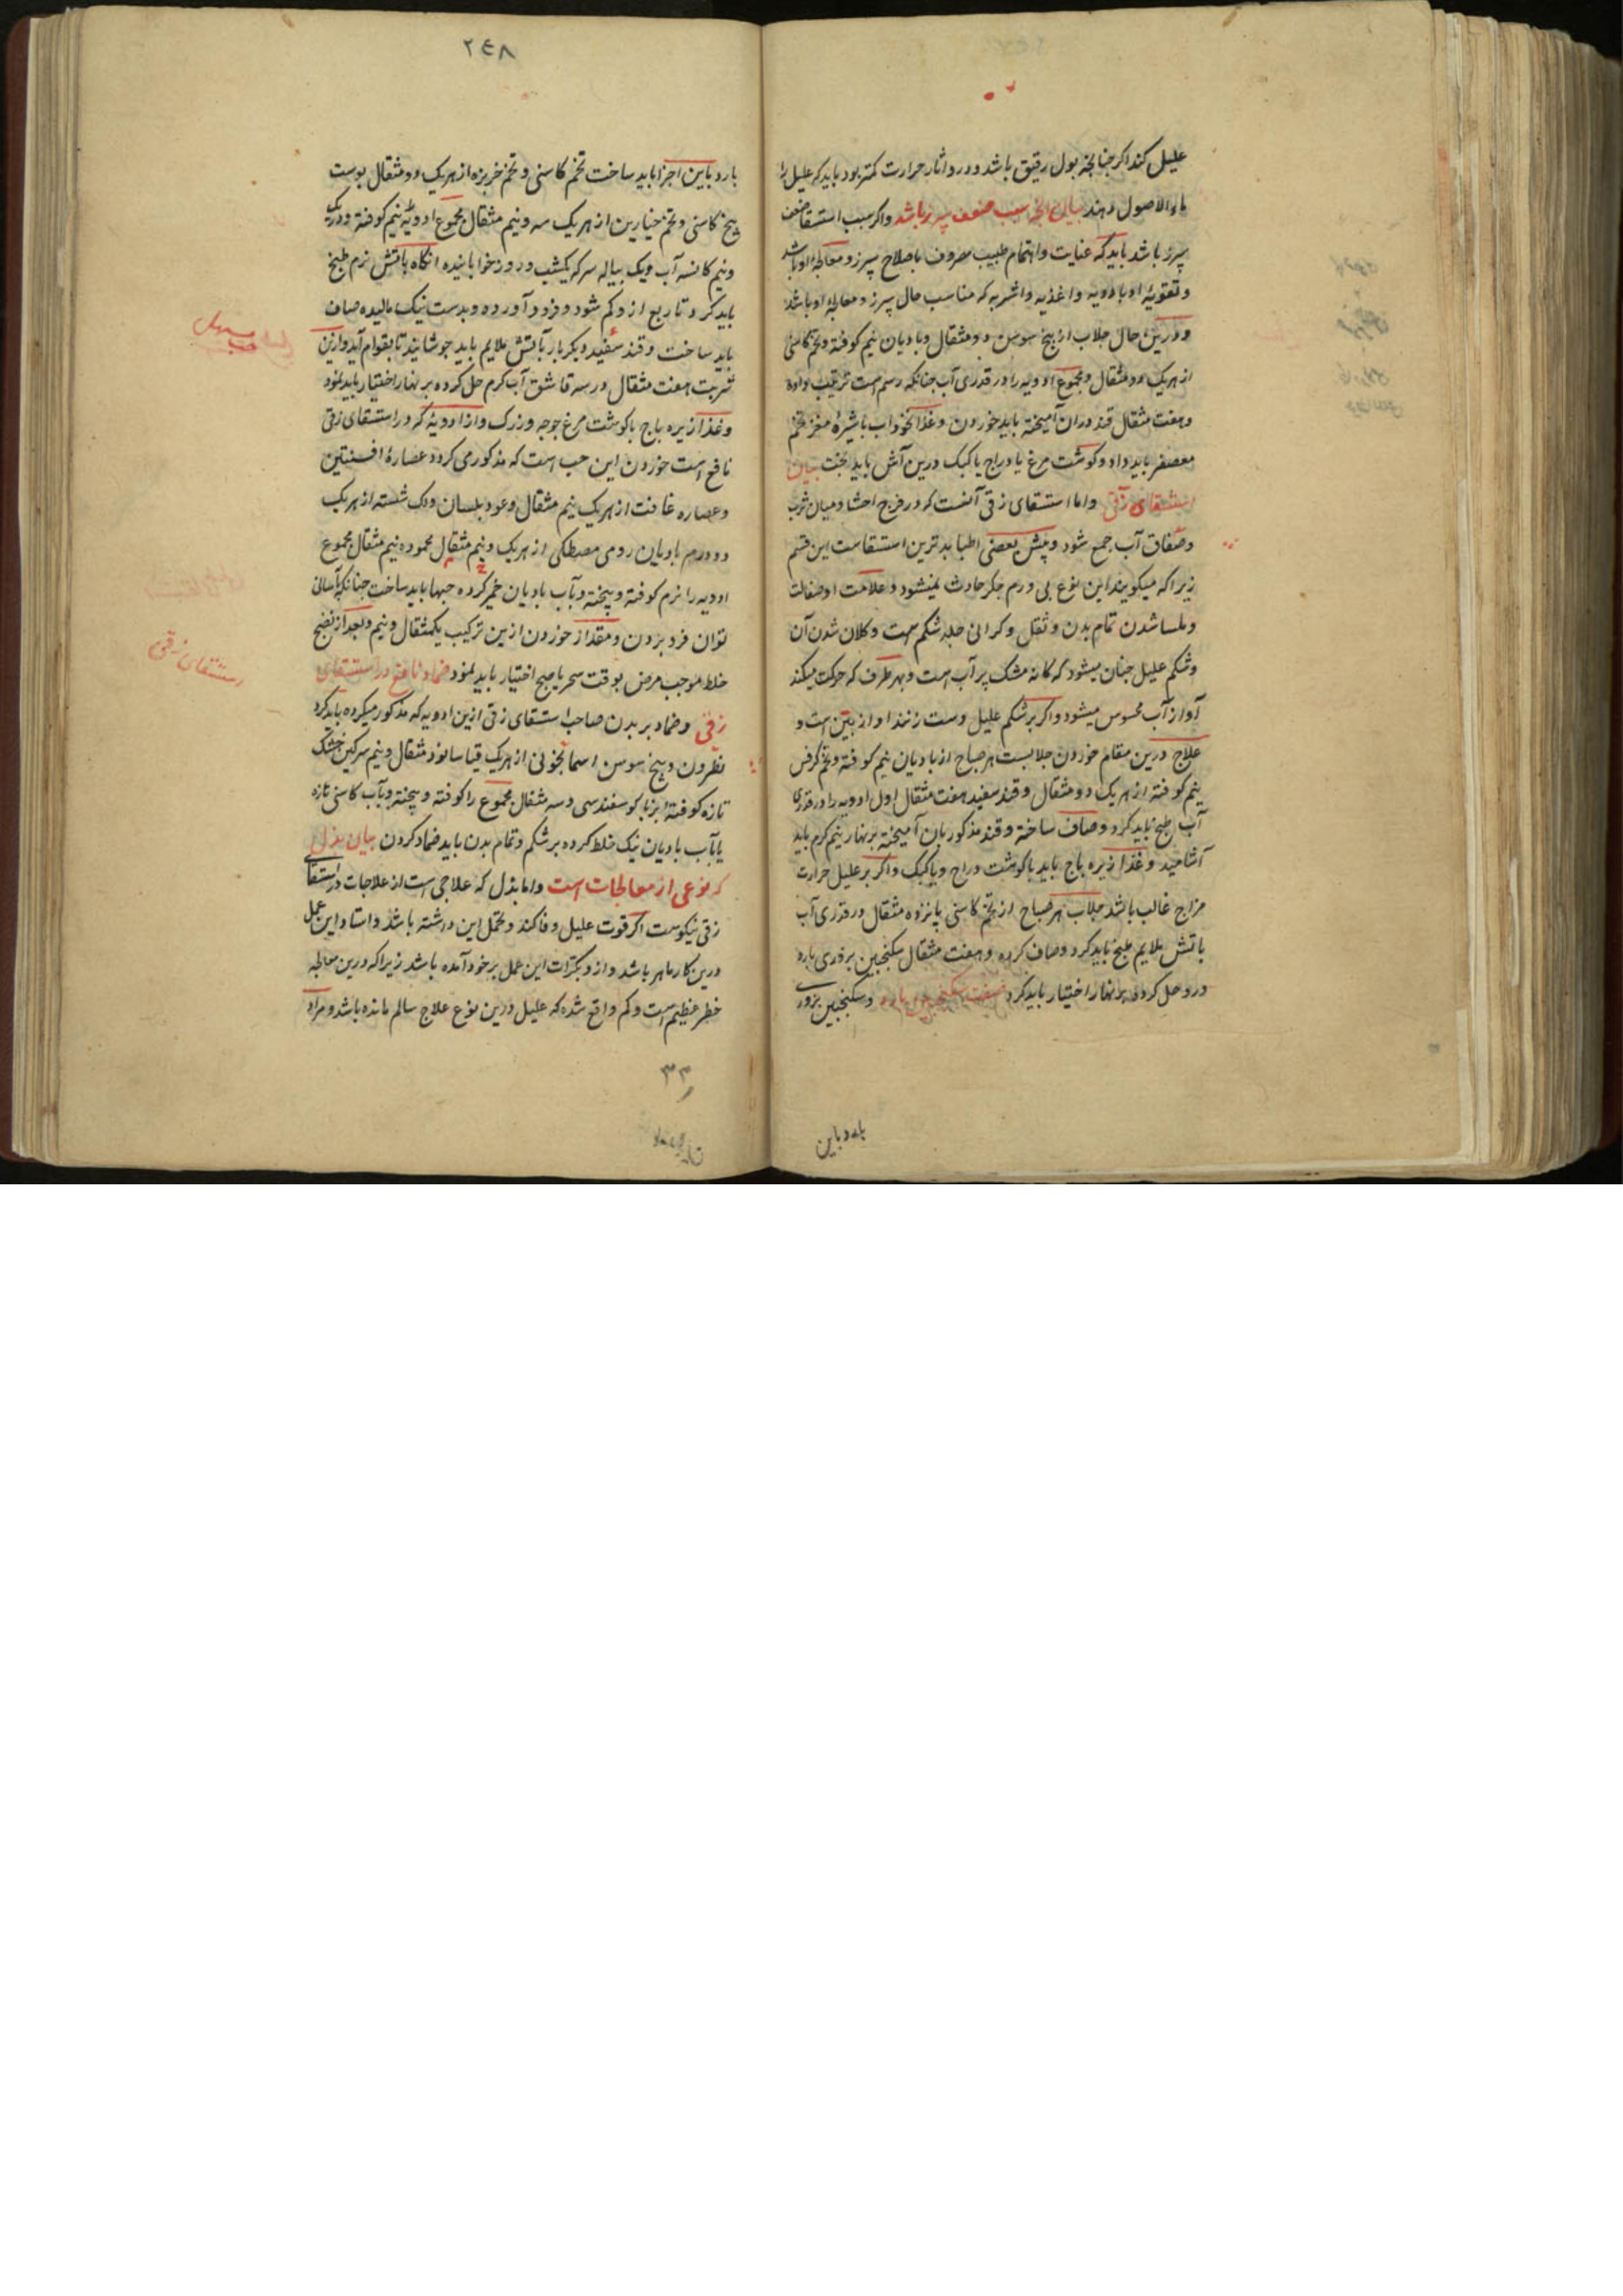 علیل کند اکر جنانچه بول رقیق باشد و درو اثار حرارت کمتر بود باید که علیل را
ماء الاصول دهند بیان انچه سبب ضعف سپرز باشد واکر سبب استسقا ضعف
سپرز باشد باید که عنایت واهتمام طبیب مصروف باصلاح سپرز و معالجهٔ او باشد
و تقویهٔ او بادویه و اغذیه واشربه که مناسب حال سپرز و معالجهٔ او باشد
و درین حال جلاب از بیخ سوسن دو مثقال و بادیان نیم کوفته و تخم کاسنی
از هریک دو مثقال و مجموع ادویه را در قدری آب جنانکه رسم است ترتیب داده
و هفت مثقال قند دران آمیخته باید خوردن و غذا نخوداب با شیرهٔ مغز تخم
معصفر باید داد و کوشت مرغ یا دراج یا کبک درین آش باید پخت بیان
استسقای زقی واما استسقای زقی آنست که در فرج احشا و میان ثرب
وصفاق آب جمع شود و پیش بعضی اطبا بدترین استسقاست این قسم
زیرا که میکویند این نوع بی ورم جکر حادث نمیشود و علامت او صقالت
و ملسا شدن تمام بدن و ثقل و کرانی جلد شکم است و کلان شدن آن
و شکم علیل جنان میشود که کانه مشک پر آب است و بهر طرف که حرکت میکند
آواز آب محسوس میشود و اکر بر شکم علیل دست زنند اواز بین است و
علاج درین مقام خوردن جلابست هر صباح از بادیان نیم کوفته و تخم کرفس
نیم کوفته از هریک دو مثقال و قند سفید هفت مثقال اول ادویه را در قدری
آب طبخ باید کرد و صاف ساخته و قند مذکور بان آمیخته بر نهار نیم کرم باید
آشامید و غذا زیره باج باید با کوشت دراج ویا کبک واکر بر علیل حرارت
مزاج غالب باشد جلاب هر صباح از تخم کاسنی پانزده مثقال در قدری آب
باتش ملایم طبخ باید کرد و صاف کرده و هفت مثقال سکنجبین بزوری بارد
درو حل کرده بر نهار اختیار باید کرد صفت سکنجبین بارد و سکنجبین بزوری
بارد باین
۲۴۸
بارد باین اجزا باید ساخت تخم کاسنی و تخم خربزه از هریک دو مثقال پوست
بیخ کاسنی و تخم خیارین از هریک سه و نیم مثقال مجموع ادویه نیم کوفته و در یک
و نیم کاسه آب و یک پیاله سرکه یکشب و روز خوابانیده انکاه باتش نرم طبخ
باید کرد تا ربع از و کم شود و فرود آورده و بدست نیک مالیده صاف
باید ساخت و قند سفید دیکر بار بآتش ملایم باید جوشانید تا بقوام آید وازین
شربت هفت مثقال در سه قاشق آب کرم حل کرده بر نهار اختیار باید نمود
و غذا زیره باج با کوشت مرغ جوجه و زرک و از ادویهٔ که در استسقای زقی
نافع است خوردن این حب است که مذکور می کردد عصارهٔ افسنتین
و عصاره غافت از هریک نیم مثقال و عود بلسان ولک شسته از هریک
دو درم بادیان رومی مصطکی از هریک و نیم مثقال محموده نیم مثقال مجموع
ادویه را نرم کوفته و بیخته و بآب بادیان خمیر کرده حبها باید ساخت جنانکه بآسانی
توان فرو بردن و مقدار خوردن ازین ترکیب یکمثقال و نیم و بعد از نضج
خلط موجب مرض بوقت سحر یا صبح اختیار باید نمود ضماد نافع در استسقای
زقی و ضماد بر بدن صاحب استسقای زقی ازین ادویه که مذکور میکردد باید کرد
نطرون و بیخ سوسن اسمانجونی از هریک قیاسا نود مثقال و نیم سرکین خشک
تازه کوفتهٔ بز یا کوسفند سی و سه مثقال مجموع را کوفته و بیخته و بآب کاسنی تازه
یا بآب بادیان نیک خلط کرده بر شکم و تمام بدن باید ضماد کردن بیان بذل
که نوعی از معالجات است واما بذل که علاجی است از علاجات در استسقای
زقی نیکوست اکر قوت علیل وفا کند و تحمل این داشته باشد و استاد این عمل
درین کار ماهر باشد و از و بکرات این عمل بر خود آمده باشد زیرا که درین معالجه
خطر عظیم است و کم واقع شده که علیل درین نوع علاج سالم مانده باشد و مراد
حب مسهل
استسقای زقی
۳۳